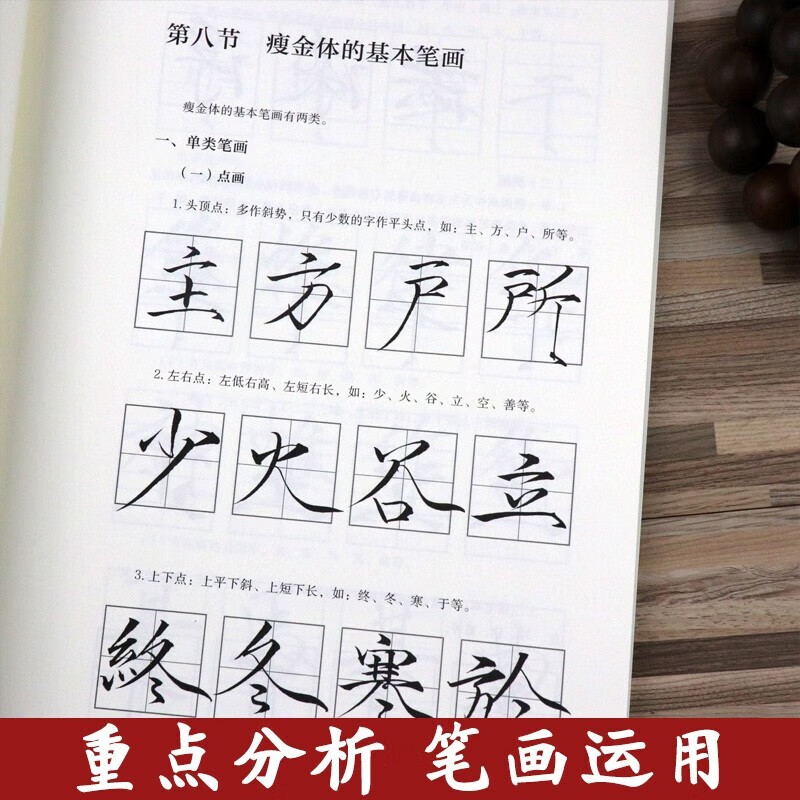 第八节 瘦金体的基本笔画
瘦金体的基本笔画有两类。
一、单类笔画
（一）点画
1.头顶点：多作斜势，只有少数的字作平头点，如：主、方、户、所等。
主 方 戶 所
2.左右点：左低右高、左短右长，如：少、火、谷、立、空、善等。
少 火 谷 立
3.上下点：上平下斜、上短下长，如：终、冬、寒、于等。
終 冬 寒 於
重点分析 笔画运用